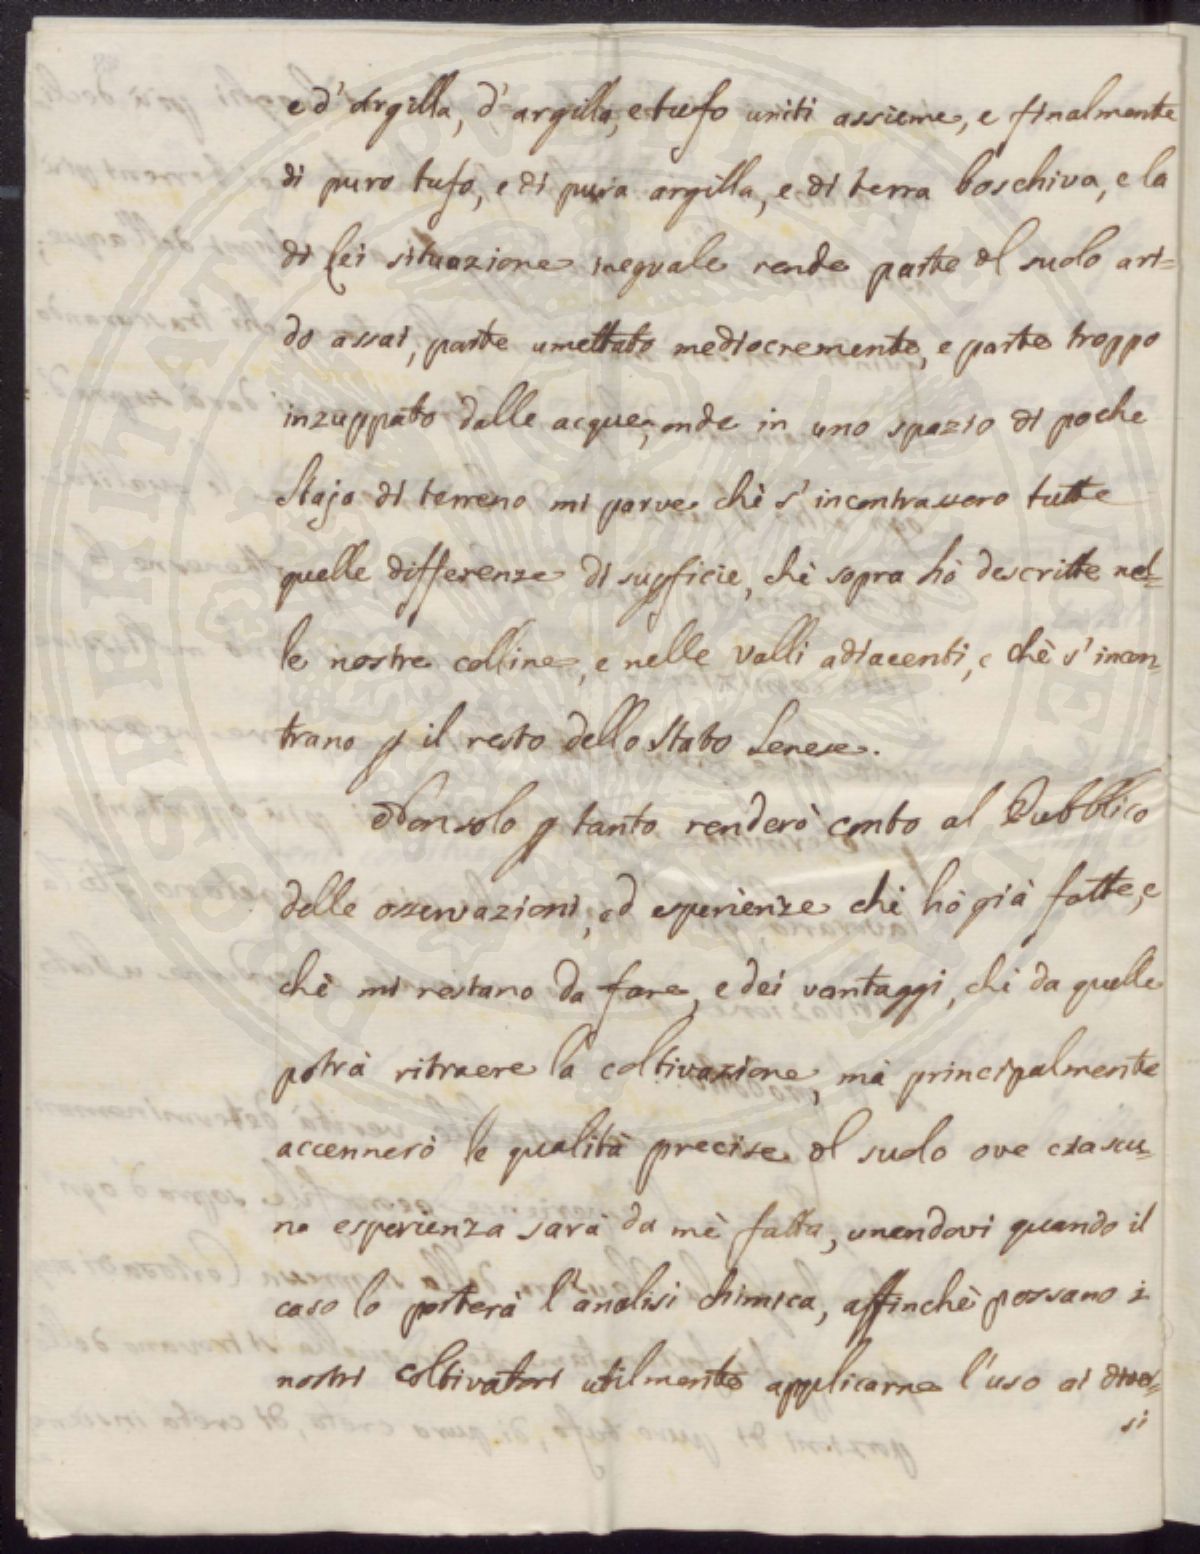 e d'Argilla, d'argilla, e tufo uniti assieme, e finalmente
di puro tufo, e di pura argilla, e di terra boschiva, e la
di lei situazione ineguale rende parte dl suolo ari=
do assai, parte umettato mediocremente, e parte troppo
inzuppato dalle acque; onde in uno spazio di poche
Staja di terreno mi parve chè s'incontrassero tutte
quelle differenze di supficie, chè sopra hò descritte nel=
le nostre colline, e nelle Valli adiacenti, e chè s'incon=
trano p il resto dello Stato Senese.
Non solo p tanto renderò conto al Pubblico
delle osservazioni, ed esperienze chè hò già fatte, e
chè mi restano da fare, e dei vantaggi, chè da quelle
potrà ritraere la coltivazione, mà principalmente
accennerò le qualità precise dl suolo ove ciascu=
na esperienza sarà da mè fatta, unendovi quando il
caso lo porterà l'analisi chimica, affinchè possano i
nostri coltivatori utilmente applicarne l'uso ai diver=
si